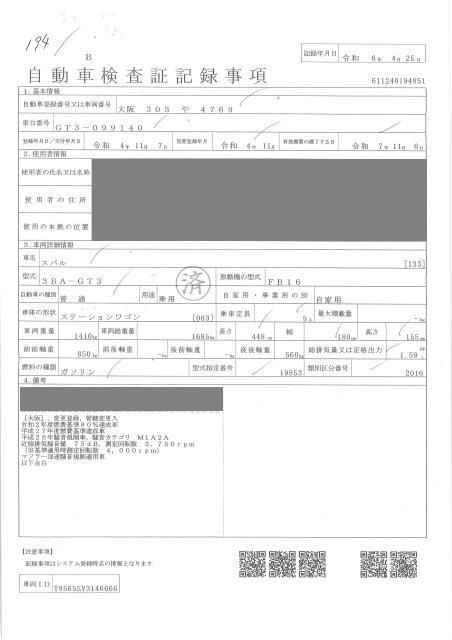 194
B
記録年月日 令和 6年 4月 25日
自動車検査証記録事項
611240194851
1. 基本情報
自動車登録番号又は車両番号 大阪 303 や 4769
車台番号 GT3-099140
登録年月日/交付年月日 令和 4年 11月 7日 初度登録年月 令和 4年 11月 有効期間の満了する日 令和 7年 11月 6日
2. 使用者情報
使用者の氏名又は名称
使用者の住所
使用の本拠の位置
3. 車両詳細情報
車名 スバル [133]
型式 3BA-GT3 済 原動機の型式 FB16
自動車の種別 普通 用途 乗用 自家用・事業用の別 自家用
車体の形状 ステーションワゴン [003] 乗車定員 5人 最大積載量 -kg
車両重量 1410kg 車両総重量 1685kg 長さ 448cm 幅 180cm 高さ 155cm
前前軸重 850kg 前後軸重 -kg 後前軸重 -kg 後後軸重 560kg 総排気量又は定格出力 1.59L
燃料の種類 ガソリン 型式指定番号 19853 類別区分番号 2016
4. 備考
[大阪], 変更登録, 管轄変更入
令和2年度燃費基準80%達成車
平成27年度燃費基準達成車
平成28年騒音規制車, 騒音カテゴリ M1A2A
近接排気騒音値 75dB, 測定回転数 3,750rpm
(旧基準適用時測定回転数 4,000rpm)
マフラー加速騒音規制適用車
以下余白
【注意事項】
記録事項はシステム登録時点の情報となります
車両ID T9565SV3146666